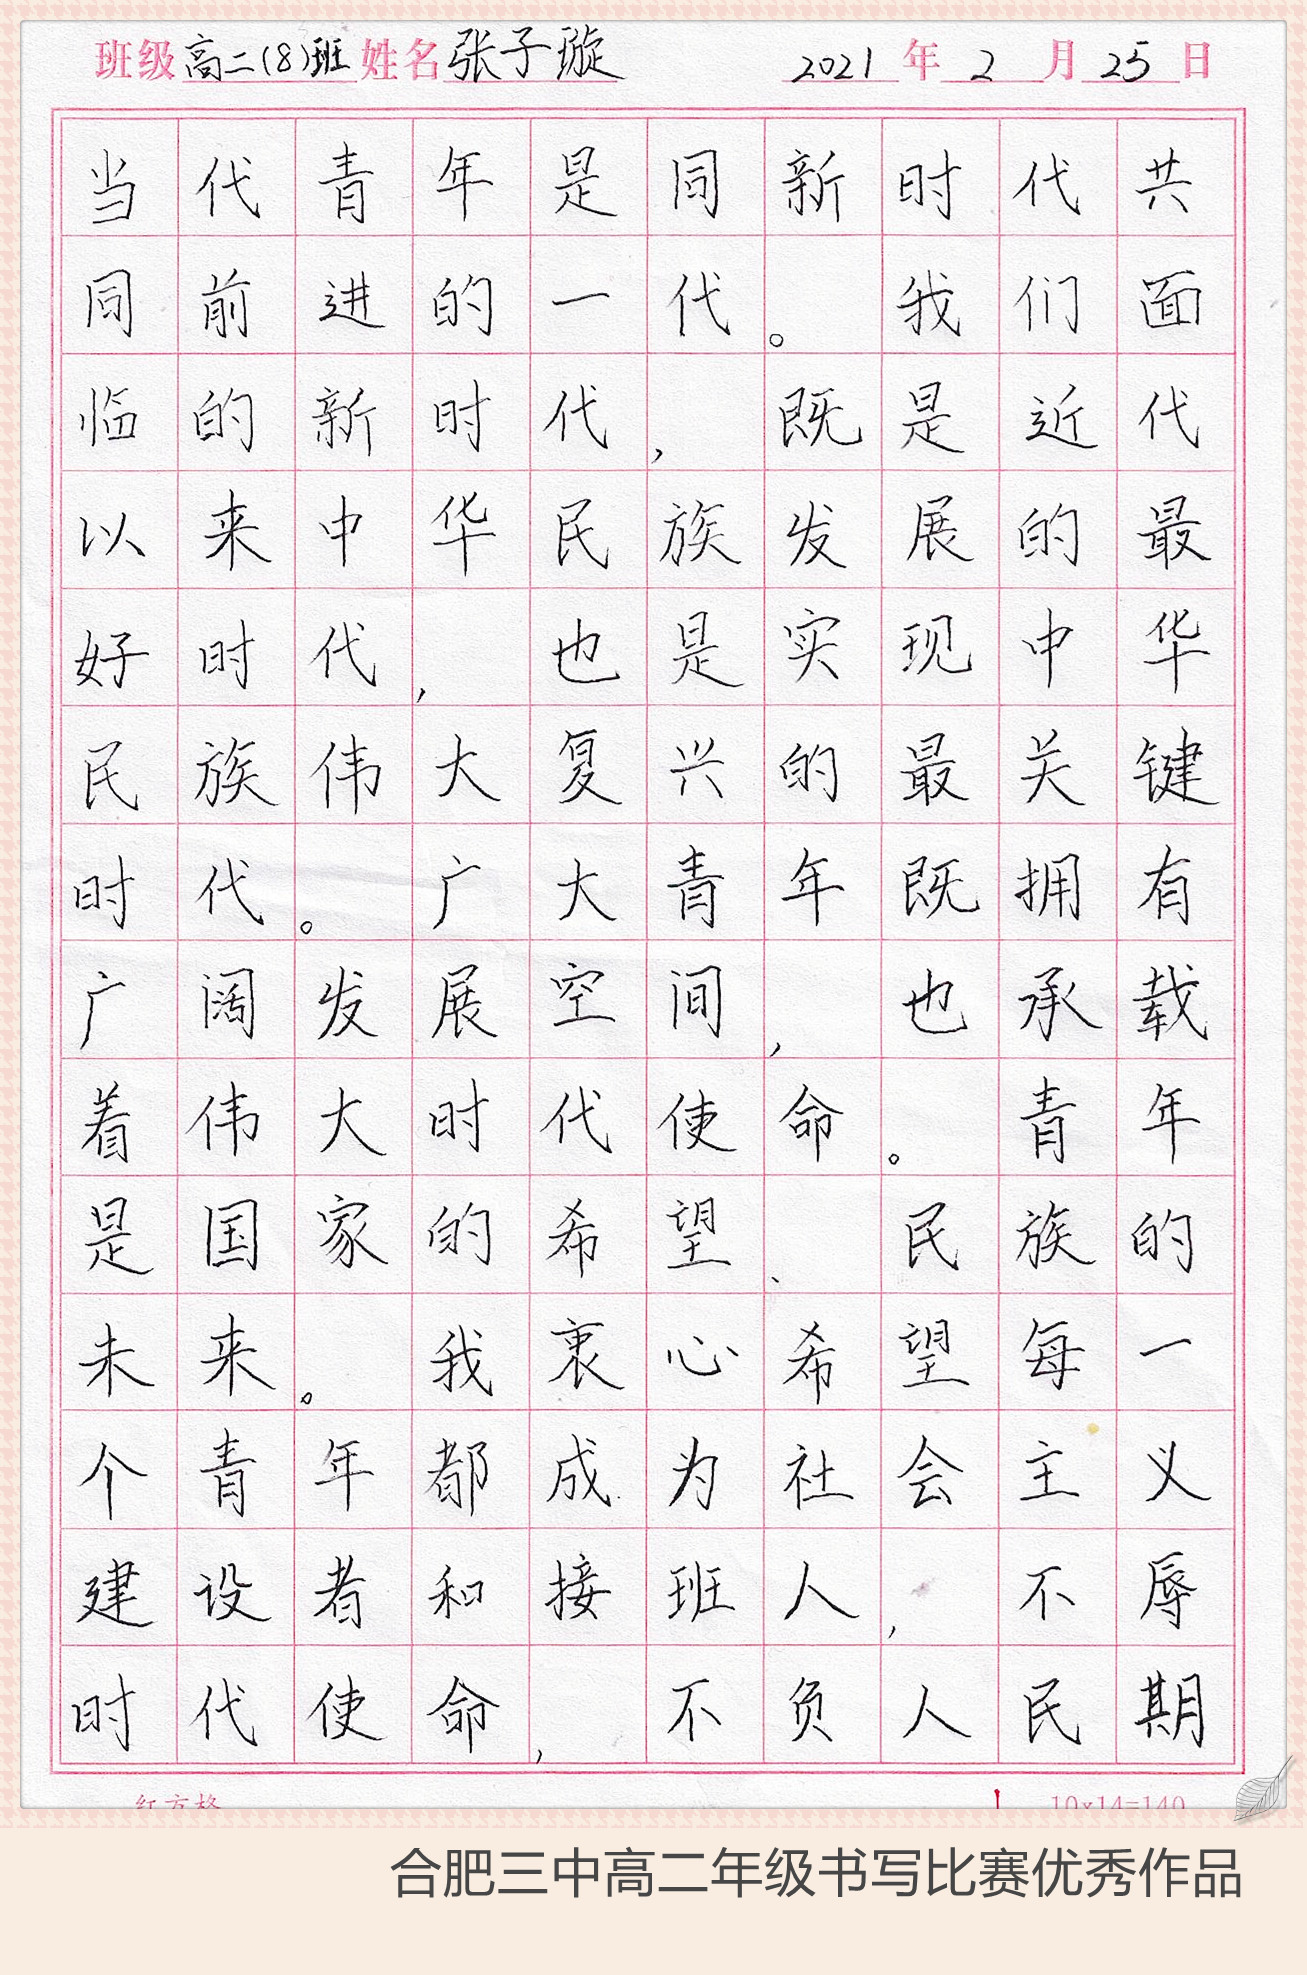 班级高二(8)班 姓名张子璇 2021年2月25日
当代青年是同新时代共
同前进的一代。我们面
临的新时代,既是近代
以来中华民族发展的最
好时代,也是实现中华
民族伟大复兴的最关键
时代。广大青年既拥有
广阔发展空间,也承载
着伟大时代使命。青年
是国家的希望、民族的
未来。我衷心希望每一
个青年都成为社会主义
建设者和接班人,不辱
时代使命,不负人民期
红方格 10×14=140
合肥三中高二年级书写比赛优秀作品